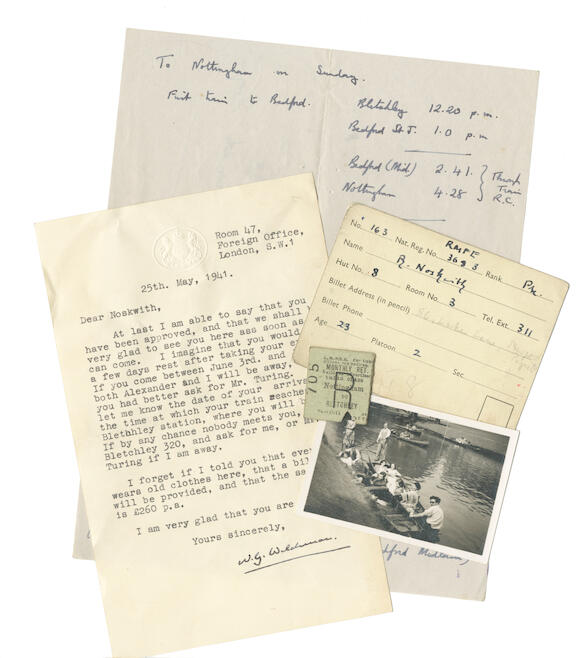 To Nottingham on Sunday.
First train to Bedford.
Bletchley 12.20 p.m.
Bedford St J. 1.0 p.m
Bedford (Mid) 2.41.
Nottingham 4.28
Through
Train
R.C.
Room 47,
Foreign Office,
London, S.W.1
25th. May, 1941.
Dear Noskwith,
At last I am able to say that you
have been approved, and that we shall
very glad to see you here ass soon as
can come. I imagine that you would
a few days rest after taking your
If you come between June 3rd. and
both Alexander and I will be away,
you had better ask for Mr. Turing.
let me know the date of your arriva
the time at which your train reaches
Bletchley station, where you will b
If by any chance nobody meets you,
Bletchley 320, and ask for me, or M
Turing if I am away.
I forget if I told you that eve
wears old clothes here, that a bil
will be provided, and that the sa
is £260 p.a.
I am very glad that you are
Yours sincerely,
W.G. Welchman.
No. 163 Nat. Reg. No. RMPE 368 3 Rank Pte.
Name R. Noskwith
Hut No. 8 Room No. 3 Tel. Ext. 311
Billet Address (in pencil)
Billet Phone
Age 23 Platoon 2 Sec.
705
MONTHLY RET.
Nottingham
BLETCHLEY